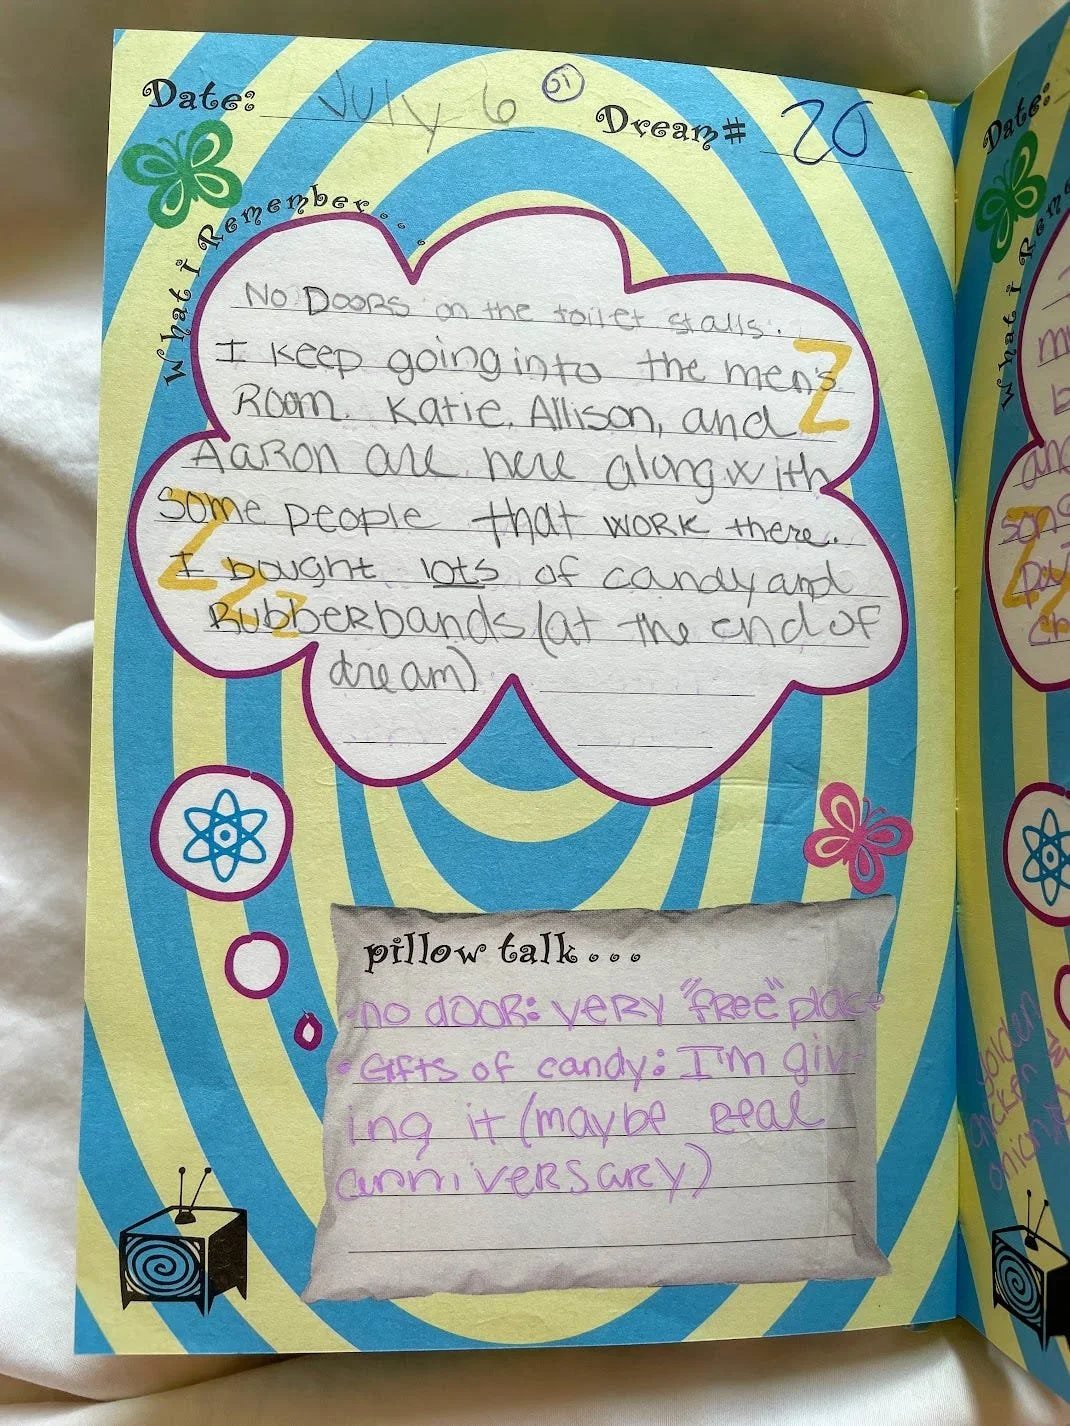 Date: July 6 51 Dream# 20
What I Remember....
No Doors on the toilet stalls.
I keep going into the men's
Room. Katie, Allison, and
Aaron are here along with
some people that work there.
I bought lots of candy and
Rubberbands (at the end of
dream)
Z
Z
Z
Z
pillow talk...
no door: very "free" place
• Gifts of candy: I'm giv-
ing it (maybe real
anniversary)
Date:
What I Reme
and
golden
chicken
onion